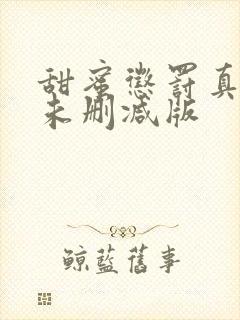 甜蜜懲罰真
未刪減版
鯨藍舊事